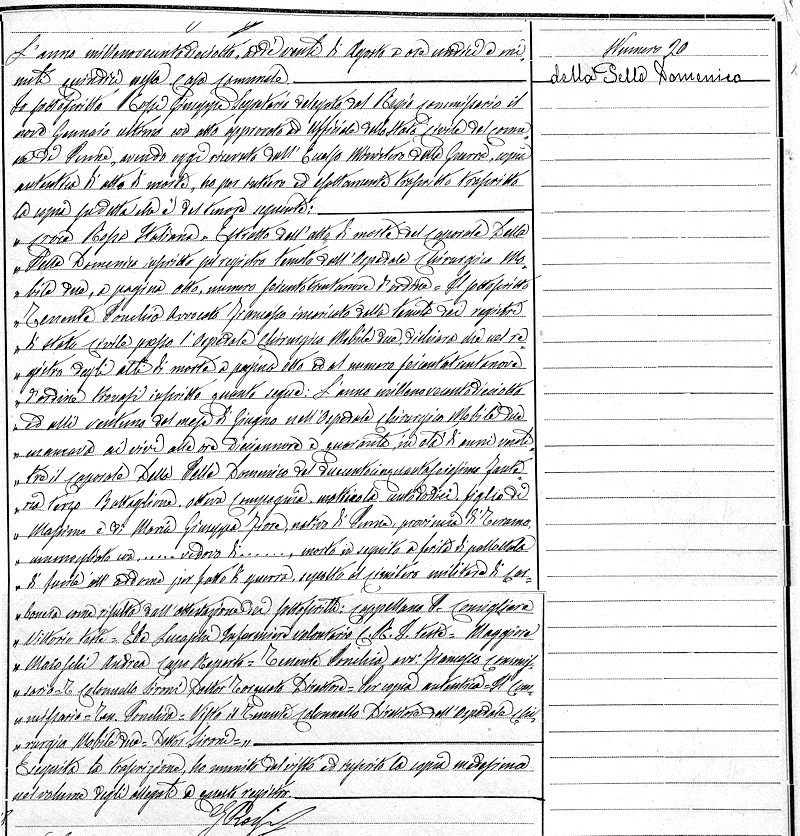 L'anno millenovecentodiciotto, addì venti di Agosto a ore undici e mi-
nuti quindici nella Casa Comunale.
Io sottoscritto Rossi Giuseppe Segretario delegato dal Regio Commissario il
nove Gennaio ultimo con atto approvato ad Ufficiale dello Stato Civile del comu-
ne di Penne, avendo oggi ricevuto dall' Ministero della Guerra, copia
autentica di atto di morte, ho per intero ed esattamente trascritto
la copia suddetta che è del tenore seguente:
" Croce Rossa Italiana = Estratto dell'atto di morte del caporale Della
" Pella Domenico inscritto sul registro tenuto dall'Ospedale Chirurgico Mo-
" bile due, a pagina otto, numero seicentotrentanove d'ordine = Il sottoscritto
" Tenente Ponchio Avvocato Francesco incaricato della tenuta dei registri
" di stato civile presso l'Ospedale Chirurgico Mobile due, dichiara che nel re-
" gistro degli atti di morte a pagina otto ed al numero seicentotrentanove
" d'ordine trovasi inscritto quanto segue: L'anno millenovecentodiciotto
" ed alli ventuno del mese di Giugno nell'Ospedale Chirurgico Mobile due
" mancava ai vivi alle ore diciannove e quaranta in età di anni venti-
" tre il caporale Della Pella Domenico del duecentocinquantaseiesimo Fante-
" ria terzo Battaglione, ottava Compagnia, matricola figlio di
" Massimo e di Maria Giuseppa Fiore, nativo di Penne, provincia di Teramo,
" ammogliato con ....... vedovo di ........, morto in seguito a ferita di pallottola
" di fucile all' addome per fatto di guerra, sepolto al cimitero militare di Car-
" bonera come risulta dall'attestazione dei sottoscritti: Cappellano P. Consigliere
" Vittorio = Infermiera volontaria C. R. I. teste = Maggiore
" Andrea Capo Reparto = Tenente Ponchio avv: Francesco Commis-
" sario = T. Colonnello Sironi Dottor Direttore = Per copia autentica = Il Com-
" missario = Ten. Ponchio = Visto il Tenente Colonnello Direttore dell'Ospedale Chi-
" rurgico Mobile due = Dottor Sironi = "
Eseguita la trascrizione, ho munito del visto ed inserito la copia medesima
nel volume degli allegati a questo registro.
G Rossi
Numero 20
della Pella Domenico